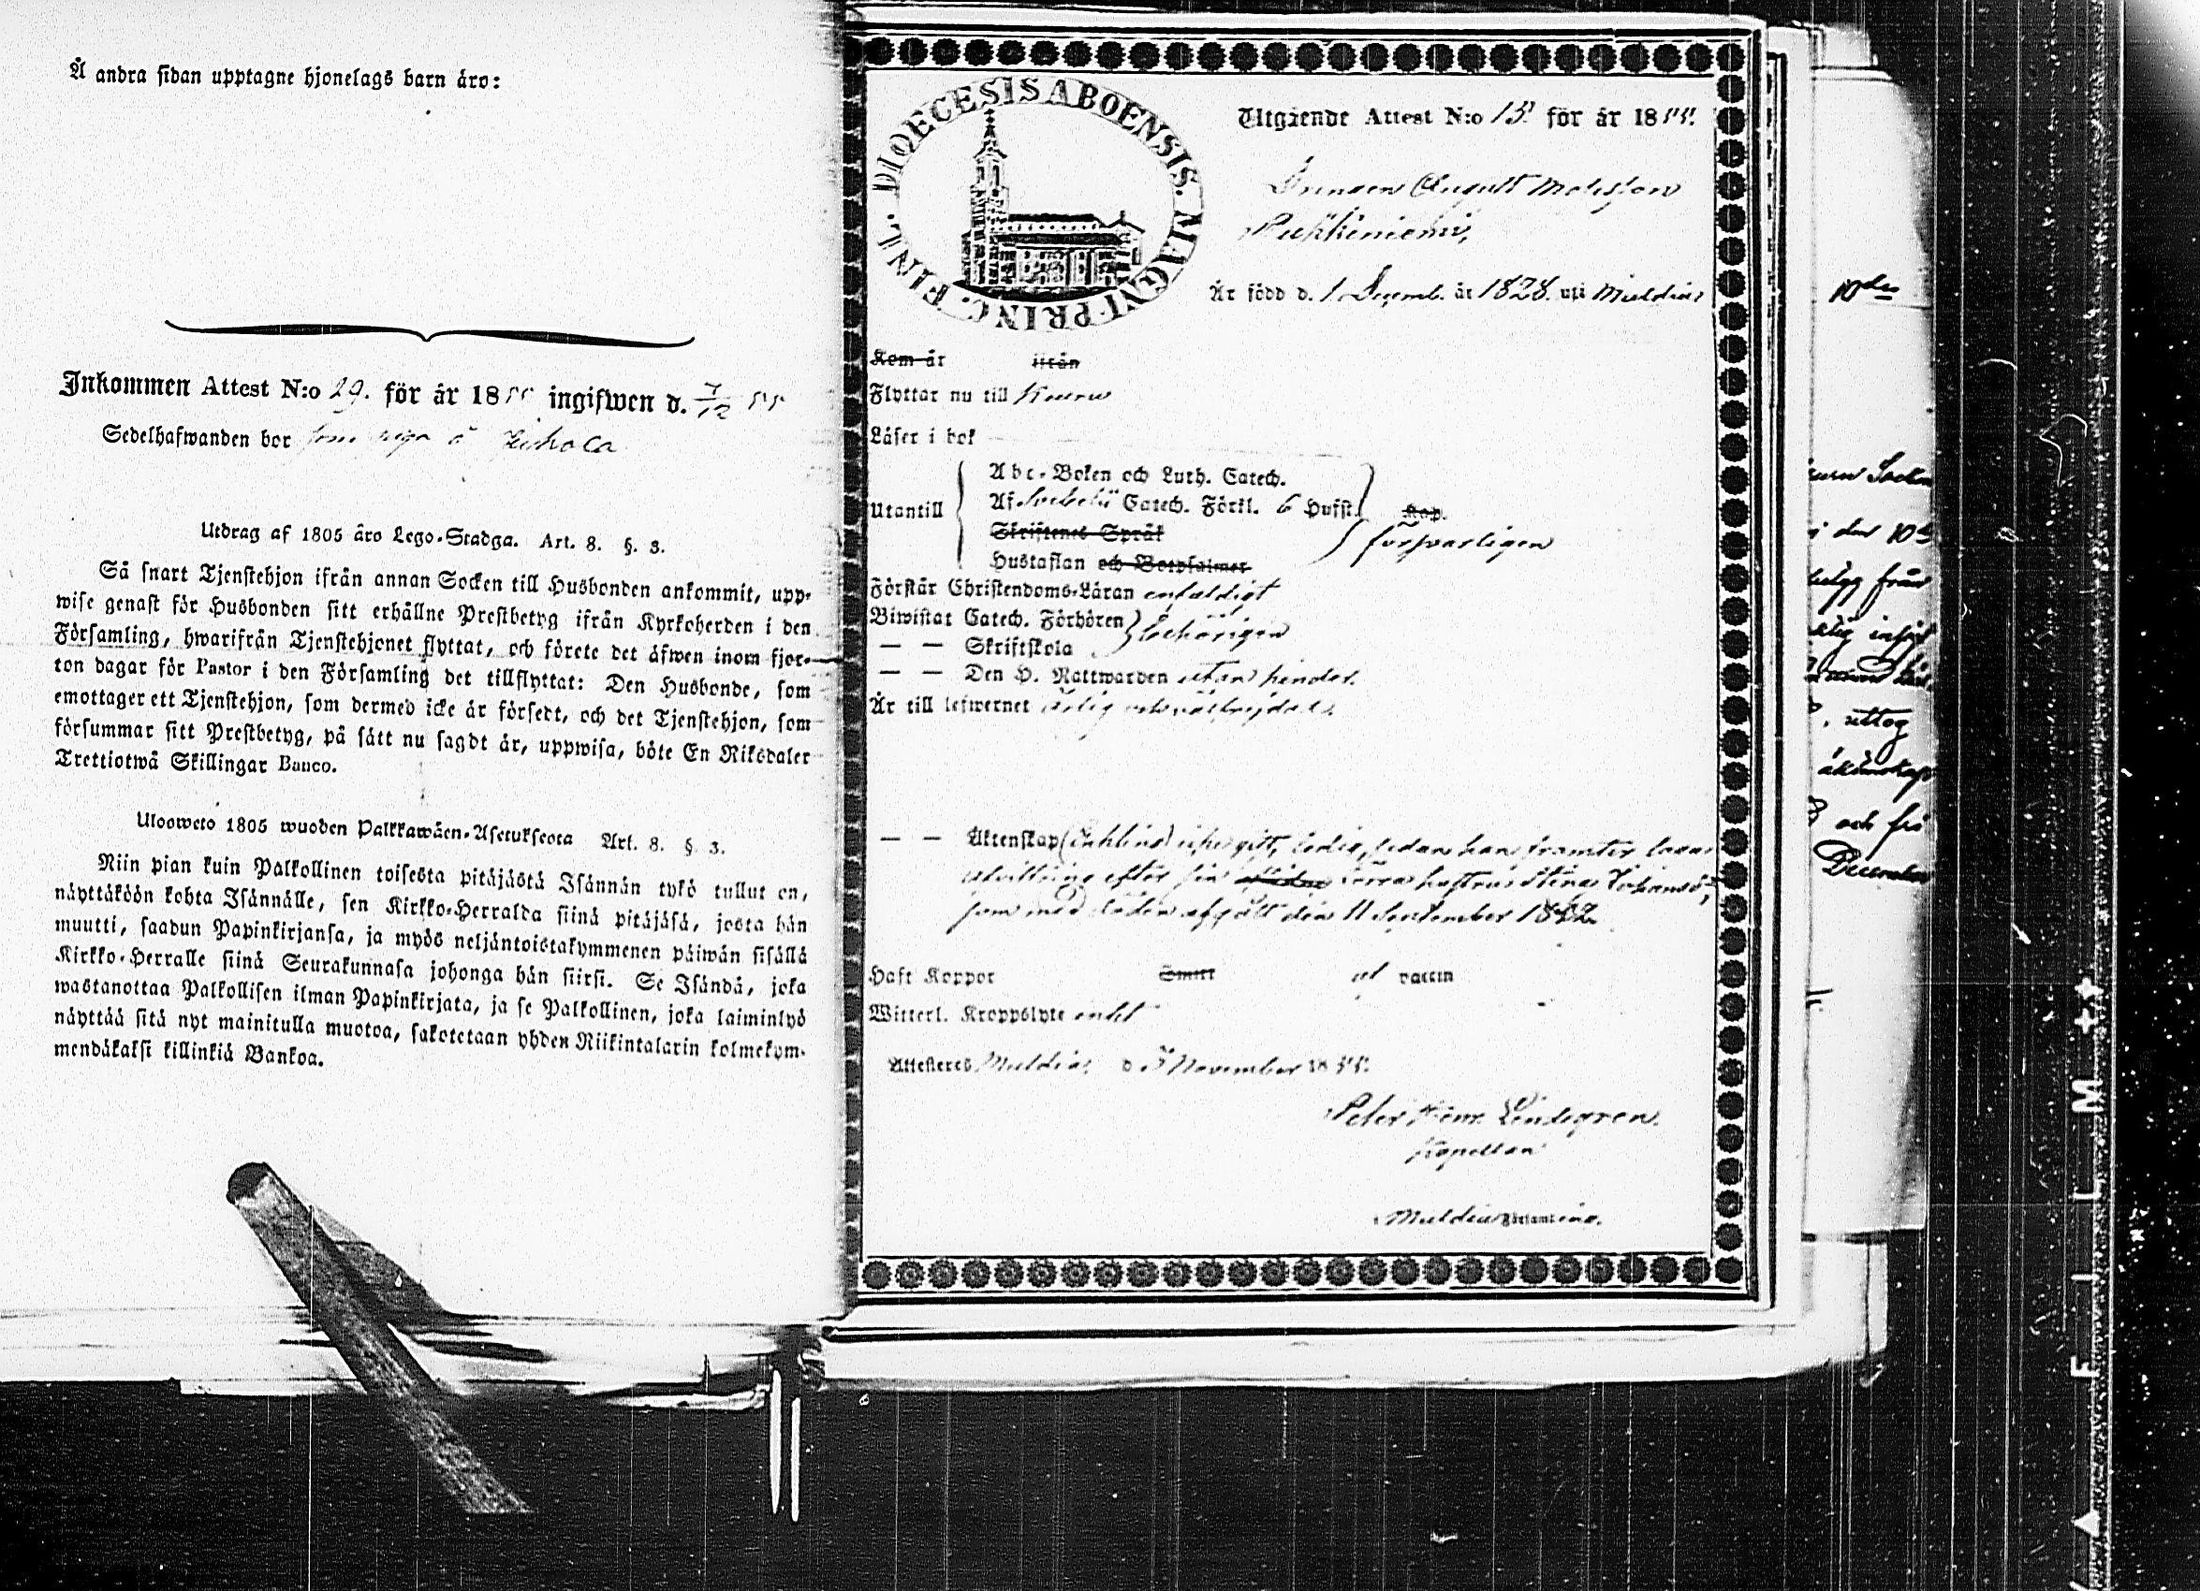 Å andra sidan upptagne hjonelags barn äro:
Inkommen Attest N:o 29. för år 1855 ingifwen d. 7/12 55
Sedelhafwanden bor som å
Utdrag af 1805 års Lego-Stadga. Art. 8. §. 3.
Så snart Tjenstehjon ifrån annan Socken till Husbonden ankommit, upp-
wise genast för Husbonden sitt erhållne Prestbetyg ifrån Kyrkoherden i den
Församling, hwarifrån Tjenstehjonet flyttat, och förete det äfwen inom fjor-
ton dagar för Pastor i den Församling det tillflyttat: Den Husbonde, som
emottager ett Tjenstehjon, som dermed icke är försedt, och det Tjenstehjon, som
försummar sitt Prestbetyg, på sätt nu sagdt är, uppwisa, böte En Riksdaler
Trettiotwå Skillingar Banco.
Ulosweto 1805 wuoden Palkkawäen-Asetuksesta Art. 8. §. 3.
Niin pian kuin Palkollinen toisesta pitäjästä Isännän tykö tullut on,
näyttäköön kohta Isännälle, sen Kirkko-Herralda siinä pitäjäsä, josta hän
muutti, saadun Papinkirjansa, ja myös neljäntoistakymmenen päiwän sisällä
Kirkko-Herralle siinä Seurakunnasa johonga hän siirsi. Se Isändä, joka
wastanottaa Palkollisen ilman Papinkirjata, ja se Palkollinen, joka laiminlyö
näyttää sitä nyt mainitulla muotoa, sakotetaan yhden Riikintalarin kolmekym-
mendäkaksi killinkiä Bankoa.
DIOECESIS ABOENSIS. MAGNI PRINC. FINL.
Utgående Attest N:o 13. för år 1855.
Drengen August Matsson
Pukkiniemi,
Är född d. 1 Decemb. år 1828. uti Muldia
Kom år ifrån
Flyttar nu till Kuru
Läser i bok
Utantill
Abc-Boken och Luth. Catech.
Af Svebelii Catech. Förkl. 6 Hufst. Kap.
Skriftenes Språk
Hustaflan och Botpsalmer
försvarligen
Förstår Christendoms-Läran enfaldigt
Biwistat Catech. Förhören
— — Skriftskola
behörigen
— — Den H. Nattwarden utan hinder.
Är till lefwernet ärlig och
— — Äktenskap (Enkling) gift, ledig, sedan han framter
efter sin hustru Stina Johansd:r,
som med döden afgått den 11 September 1852
Haft Koppor Smitt vaccin
Witterl. Kroppslyte intet
Attesteras Muldia d 5 November 1855.
Peter Henr. Lindegren.
Kapellan
Muldia Församling.
10de
Kuru Socken
i den 10de
betyg från
, uttog
äktenskap
8 och fri
December
FILM ++